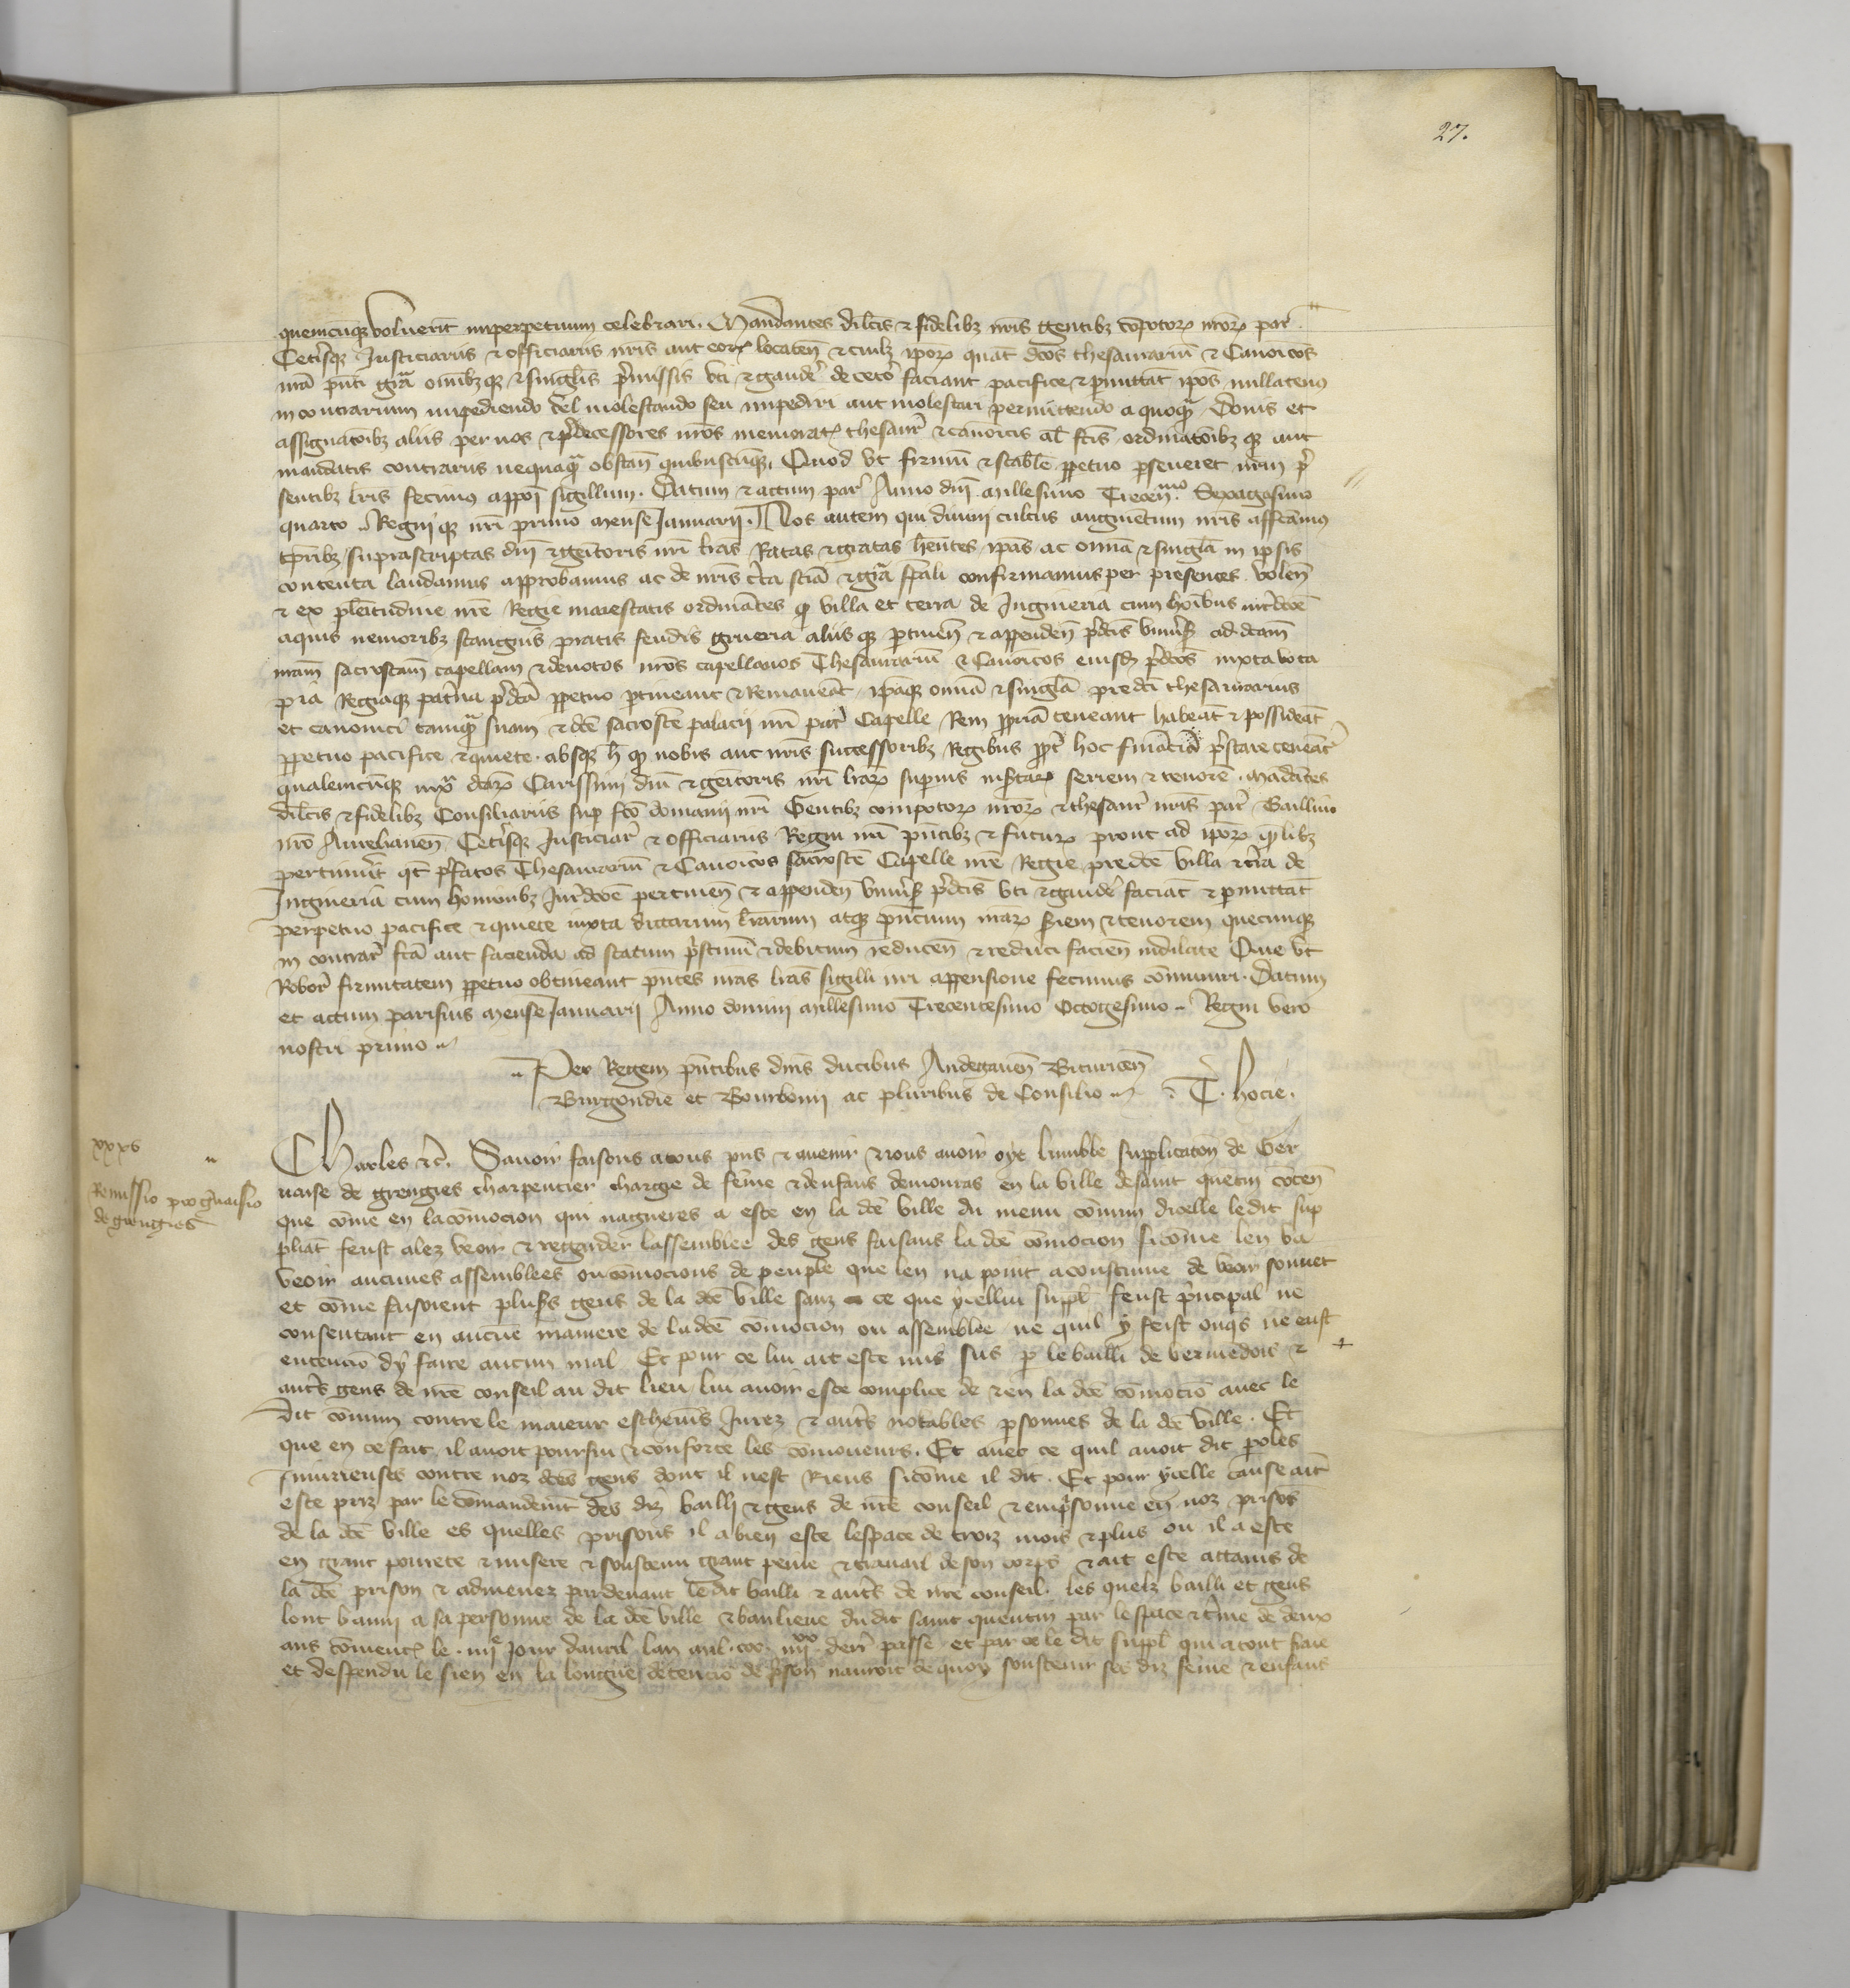 27.
quemcunq voluerit imperpetuum celebrari. Mandantes dilcis & fidelibz nris gentibz compotor nror par
Ceterisq Justiciariis & officiariis nris aut eor locaten & cuilz ipor quat dcos thesaurariu & Canoicos
nra pnti gra omibzq & singlis pmissis uti & gaudere de cetero faciant pacifice & pmittat ipos nullatenus
in contrarium impediendo vel molestando seu impediri aut molestari permittendo a quoq Donis et
assignatoibz aliis per nos & pdecessores nros memorat thesaur & canoicis al fcis ordinatoibz q aut
mandatis contrariis nequaq obstan quibuscuq. Quod ut firmu & stabile ppetuo pseveret nrm p
sentibz lris fecimus appoi sigillum. Datum & actum par Anno dni millesimo Trecenmo Sexagesimo
quarto .. Regniq nri primo mense Januarii. Nos autem qui divini cultus augmentum nris affcamus
tpribz suprascriptas dni & genitoris nri lras Ratas & gratas hentes ipas ac omia & singla in ipsis
contenta laudamus approbamus ac de nris certa scia & gra spali confirmamus per presentes volen
& ex plenitudine nre Regie maiestatis ordinates q villa et terra de Ingineria cum hoibus iurdcoe
aquis nemoribz stangnis pratis feudis grueria aliisq ptinen & appenden pdcis univs ad dcam
nram sacrosctam capellam & devotos nros capellanos Thesaurariu & Canoicos eiusd pdcos iuxta vota
pia Regiaq paterna pdca ppetuo ptineant & Remaneat ipaq omia & singla predci thesaurarius
et canonici tamq suam & dce sacroscte palacii nri par Capelle Rem ppria teneant habeat & possideat
ppetuo pacifice & quiete. absq h q nobis aut nris successoribz Regibus ppt hoc financia pstare teneat
qualemcunq iuxa dcar Carissimi dni & genitoris nri lrar superius insertar seriem & tenore. Madates
dilcis & fidelibz Consiliariis sup fco domanii nri Gentibz compotor nror & thesaur nris par Baillivo
nro Aurelianen Ceterisq Justiciar & officiariis Regni nri pntibz & futuris prout ad ipor quilibz
pertinuit qt pfatos Thesaurariu & Canoicos sacroscte Capelle nre Regie predce villa & tra de
Ingineria cum hominibz Jurdcoe pertinen & appenden univs pdcis uti & gaudere faciat & pmittat
perpetuo pacifice & quiete iuxta dictarum lrarum atq pncium nrar seriem & tenorem quecunq
in contrar fca aut facienda ad statum pstinu & debitum reducen & reduci facien indilate Que ut
Robore firmitatem ppetuo obtineant pntes nras lras sigilli nri appensione fecimus communiri. Datum
et actum parisius mense Januarii Anno domini millesimo Trecentesimo Octogesimo .. Regni vero
nostri primo ..
.. Per Regem pntibus dnis ducibus Andegaven Bituricen
Burgondie et Bourbonii ac pluribus de Consilio .. T. hocie.
xxxv
Remissio pro gervasio
de grengies
Charles &c. Savoir faisons a tous pns & avenir & nous avoir oye lumble supplicaton de Ger
vaise de grengies charpentier chargie de feme & denfans demourans en la ville de saint quentin coten
que come en la comocion qui nagueres a este en la dce ville du menu comun dicelle le dit sup
pliat feust alez veoir & regarder lassemblee des gens faisans la dce comocion si come len va
veoir aucunes assemblees ou comocions de peuple que len na point acoustume de veoir souvet
et come faisoient plusrs gens de la dce ville sanz ce que ycellui suppl feust principal ne
consentant en aucune maniere de la dce comocion ou assemblee ne quil y feist onqs ne eust
entencio dy faire aucun mal Et pour ce lui ait este mis sus p le bailli de vermedois &
autrs gens de nre conseil au dit lieu lui avoir este complice de & en la dce comocio avec le
dit comun contre le maieur eschevins Jurez & autrs notables psonnes de la dce ville. Et
que en ce fait il avoit poursui & conforte les comoveurs. Et avec ce quil avoit dit poles
Iniurieuses contre noz dces gens dont il nest Riens si come il dit. Et pour ycelle cause ait
este priz par le comandement des diz bailli & gens de nre conseil & emprisonne en noz prisos
de la dce ville es quelles prisons il a bien este lespace de troiz mois & plus ou il a este
en grant povrete & misere & soustenu grant peine & travail de son corps & ait este attains de
la dce prison & admenez par devant le dit bailli & autrs de nre conseil. les quelz bailli et gens
lont banni a sa personne de la dce ville & banlieue du dit saint quentin par lespace & terme de deux
ans comencs le . iiie Jour davril lan mil . ccc . iiiixx derr passe et par ce le dit suppl qui a tout fraie
et despendu le sien en la longue detencio de prison nauroit de quoy soustenir ses diz feme & enfans